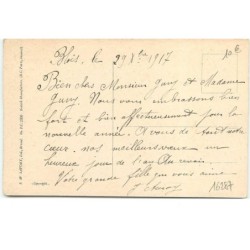 Blois, le 29 Xbre 1917
Bien chers Monsieur Guny et Madame
Guny. Nous vous embrassons bien
fort et bien affectueusement pour la
nouvelle année. A vous de tout notre
cœur. nos meilleurs vœux et
heureux jour de l'an Au revoir.
Votre grande fille qui vous aime